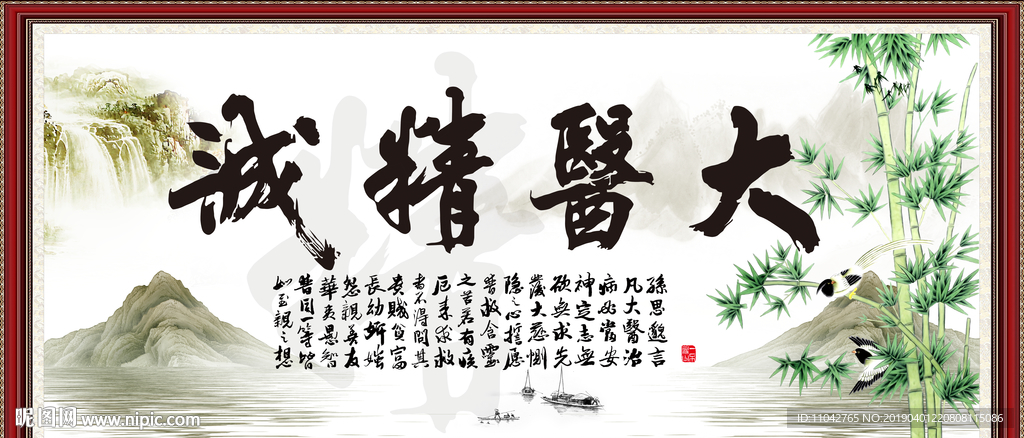 大醫精誠
孫思邈言
凡大醫治
病必當安
神定志無
欲無求先
發大慈惻
隱之心誓愿
普救含靈
之苦若有疾
厄來求救
者不得問其
貴賤貧富
長幼妍媸
怨親善友
華夷愚智
普同一等皆
如至親之想
昵图网 www.nipic.com
ID:11042765 NO:20190401220808115086